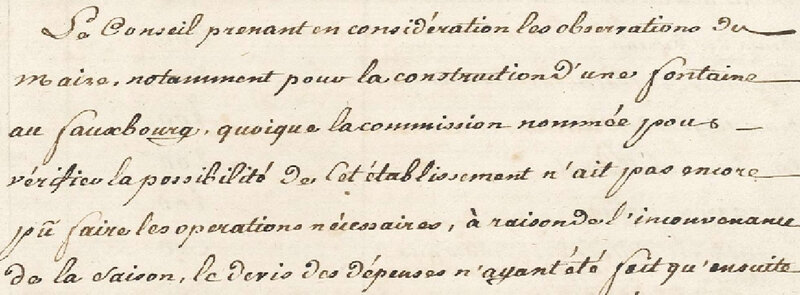 Le Conseil prenant en considération les observations du
maire, notamment pour la construction d'une fontaine
au fauxbourg, quoique la commission nommée pour
vérifier la possibilité de Cet établissement n'ait pas encore
pû faire les operations nécessaires, à raison de l'inconvenance
de la Saison, le devis des dépenses n'ayant été fait qu'ensuite